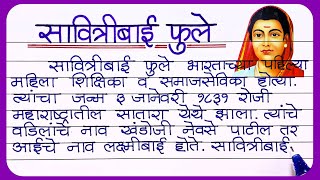 सावित्रीबाई फुले
सावित्रीबाई फुले भारताच्या पहिल्या
महिला शिक्षिका व समाजसेविका होत्या.
त्यांचा जन्म ३ जानेवारी १८३१ रोजी
महाराष्ट्रातील सातारा येथे झाला. त्यांचे
वडिलांचे नाव खंडोजी नेवसे पाटील तर
आईचे नाव लक्ष्मीबाई होते. सावित्रीबाई.